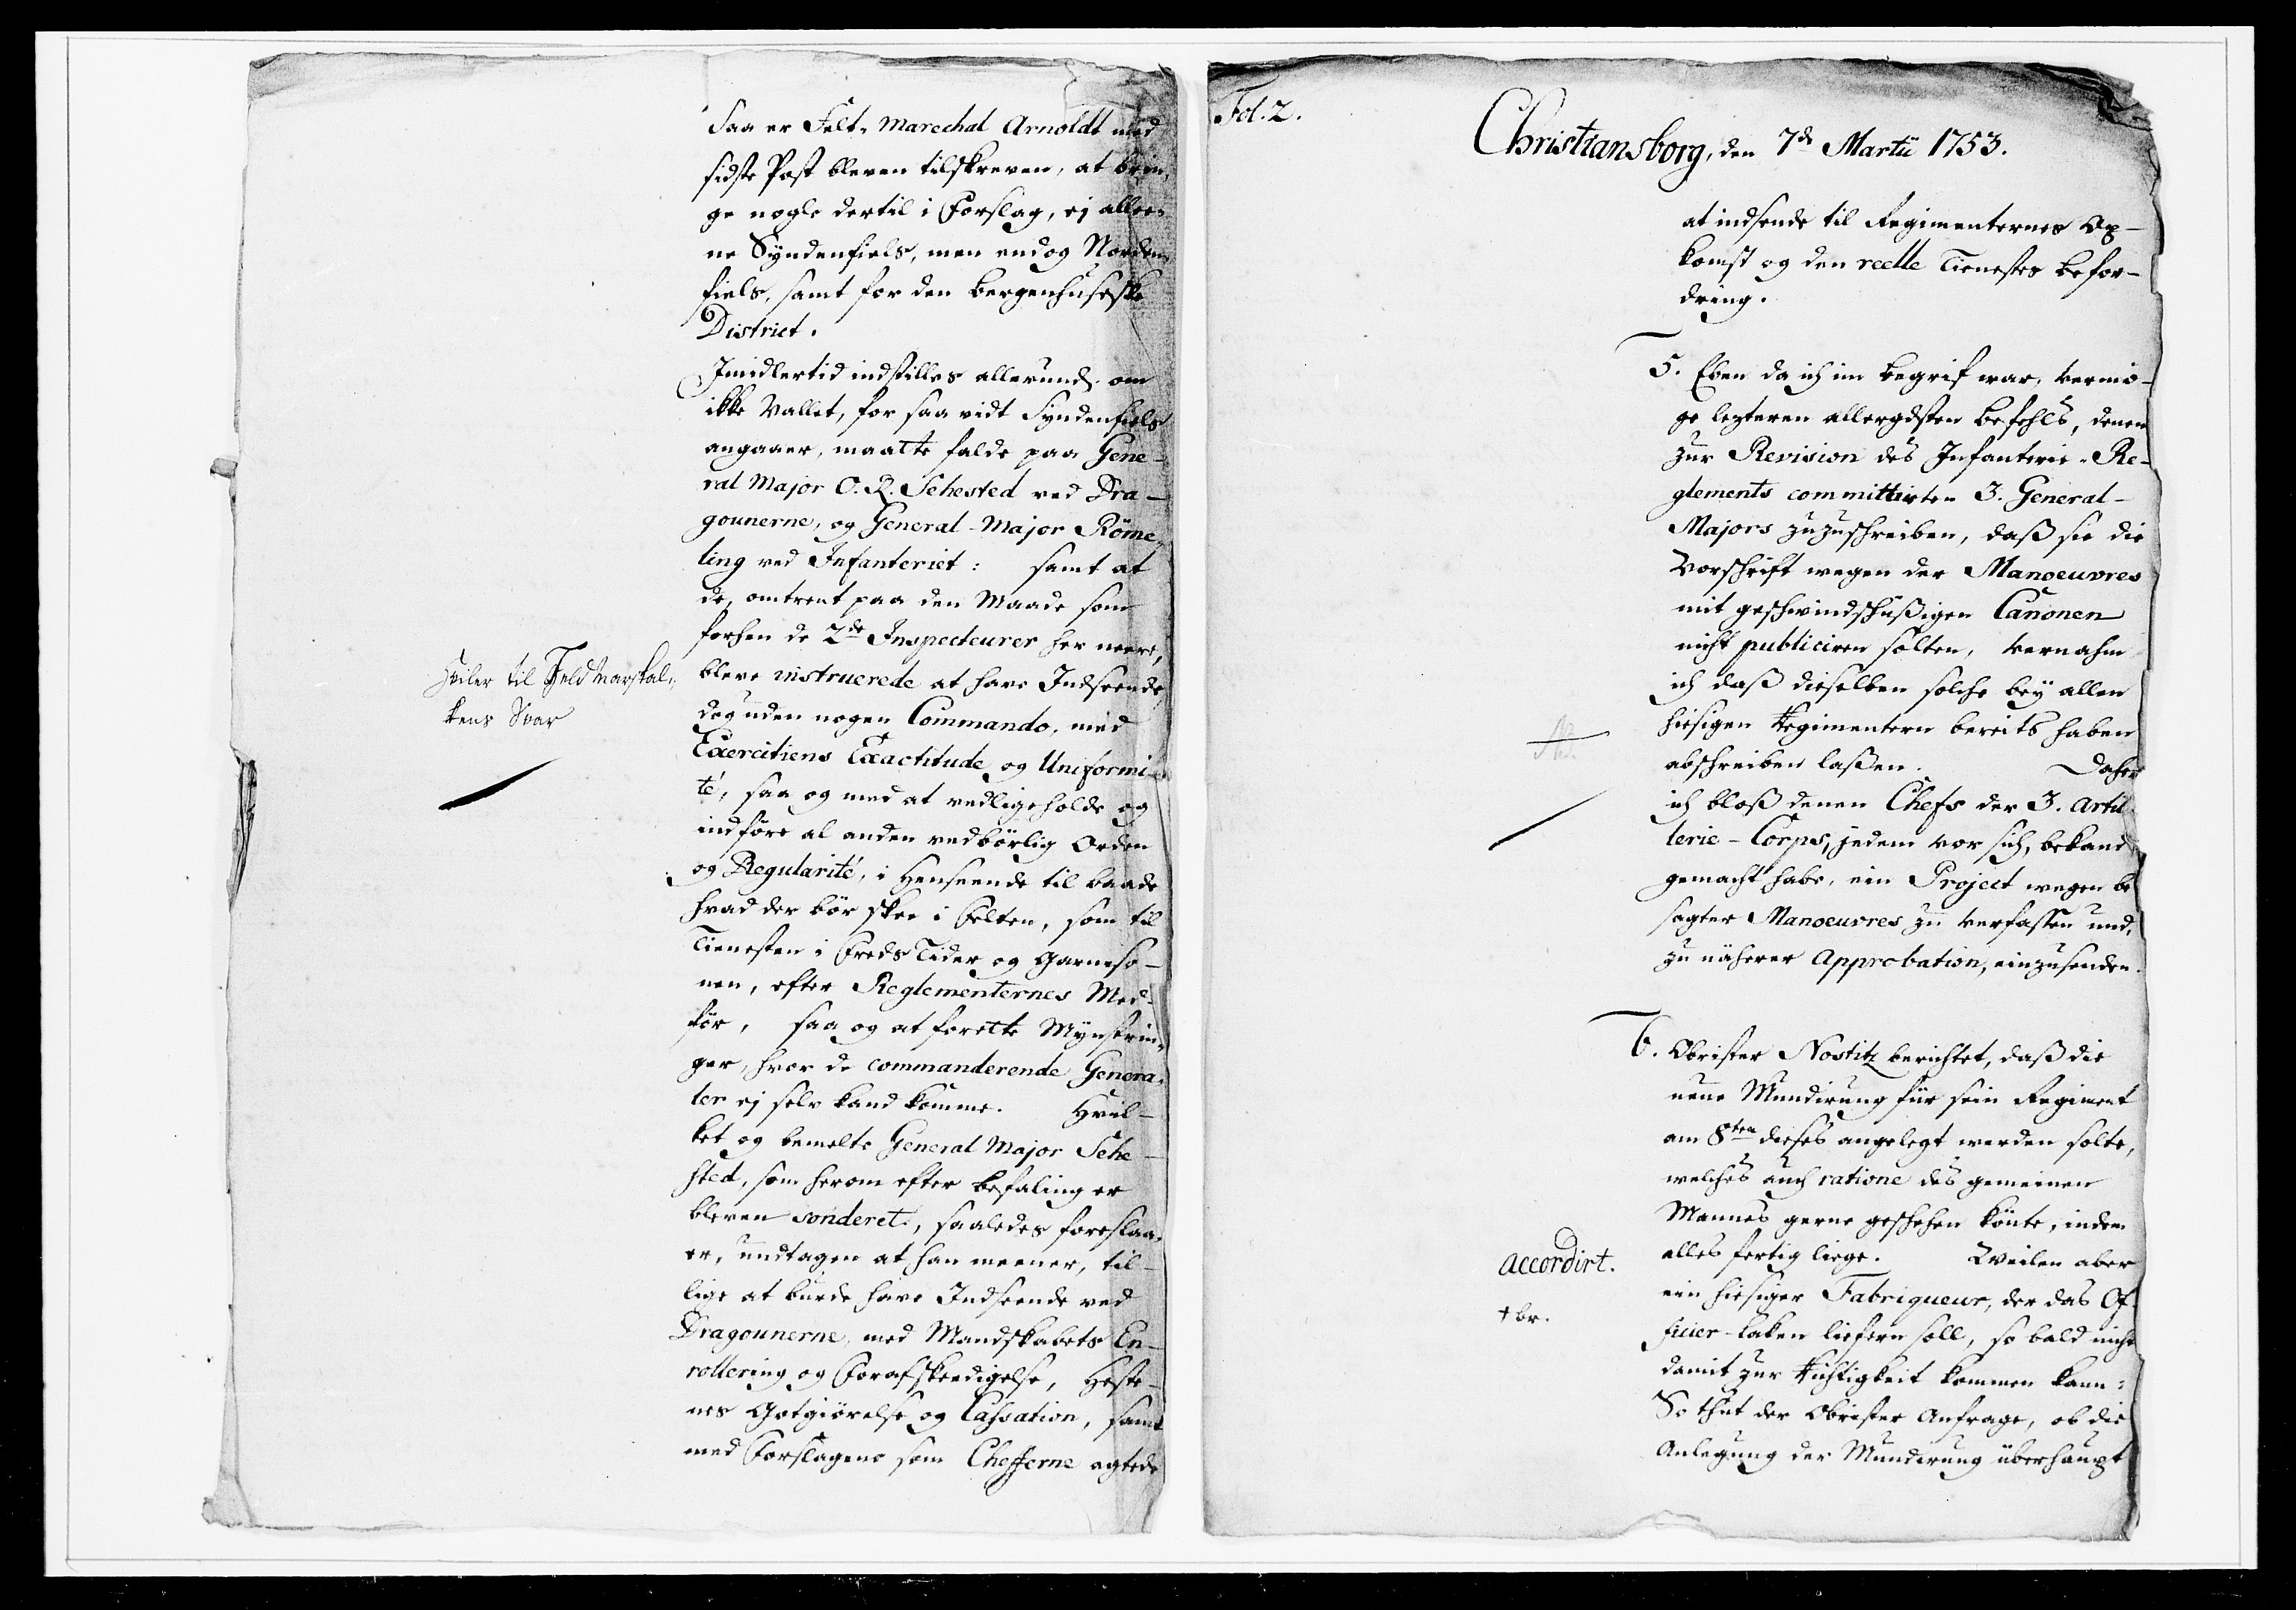 Saa er Felt-Marechal Arnoldt med
sidste Post bleven tilskreven, at brin-
ge nogle dertil i Forslag, ej allee-
ne Syndenfiels, men endog Norden-
fiels, samt for den Bergenhusiske
District.
Imidlertid indstilles allerund. om
ikke Vallet, for saa vidt Syndenfiels
angaaer, maatte falde paa Gene-
ral Major O. R. Sehested ved Dra-
gounerne, og General-Major Röme-
ling ved Infanteriet: samt at
de, omtrent paa den Maade som
forhen de 2de Inspecteurer her neere,
bleve instruerede at have Indseende,
dog uden nogen Commando, med
Exercitiens Exactitude og Uniformi-
té, saa og med at vedligeholde og
indføre al anden vedbørlig Orden
og Regularité, i Henseende til baade
hvad der bør skee i Felten, som til
Tienesten i Freds Tider og Garniso-
nen, efter Reglementernes Med-
før, saa og at forette Mynstrin-
ger, hvor de commanderende Genera-
ler ej selv kand komme. Hvil-
ket og bemelte General Major Sehe-
sted, som herom efter Befaling er
bleven sonderet, saaledes foreslaa-
er, undtagen at han meener, til-
lige at burde have Indseende ved
Dragounerne, med Mandskabets En-
rollering og Forafskeedigelse, Heste-
nes Gotgiørelse og Cassation, samt
med Forslagene som Chefferne agtede
Hviler til Feld Marskal-
kens Svar
Fol. 2.
Christiansborg, den 7de Martii 1753.
at indsende til Regimenternes Op-
komst og den reelle Tienestes Befor-
dring.
5. Eben da ich im Begrif war, vermö-
ge lezteren allergdsten Befehls, denen
zur Revision des Infanterie-Re-
glements committirten 3. General-
Majors zuzuschreiben, daß sie die
Vorschrift wegen der Manoeuvres
mit geschwindschüßigen Canonen
nicht publiciren solten, vernahm
ich daß dieselben solche bey allen
hiesigen Regimentern bereits haben
abschreiben laßen. Daher
ich bloß denen Chefs der 3. Artil-
lerie-Corps, jedem vor sich, bekand
gemacht habe, ein Project wegen be
sagter Manoeuvres zu verfassen und,
zu näherer Approbation, einzusenden.
6. Obrister Nostitz berichtet, daß die
neue Mundirung für sein Regiment
am 8ten dieses angelegt werden solte,
welches auch ratione des gemeinen
Mannes gerne geschehen könte, indem
alles fertig liege. Weilen aber
ein hiesiger Fabriqueur, der das Of-
ficier-Laken liefern soll, so bald nicht
damit zur Richtigkeit kommen kann:
So thut der Obrister Anfrage, ob die
Anlegung der Mundirung überhaupt
accordirt.